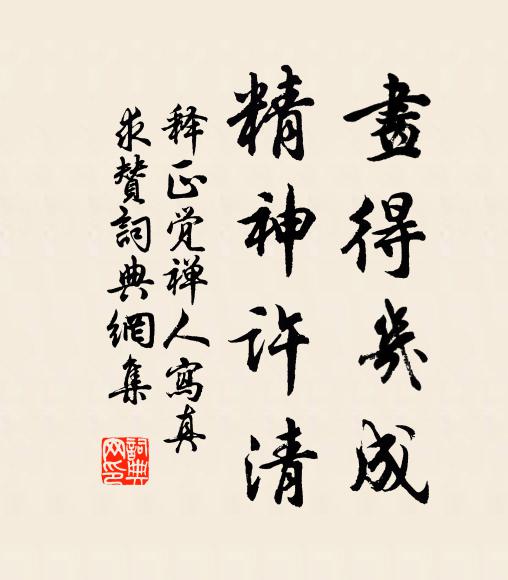 畫得幾成
精神許清
释正觉禅人寫真
求贊詞典網集
詞典網印